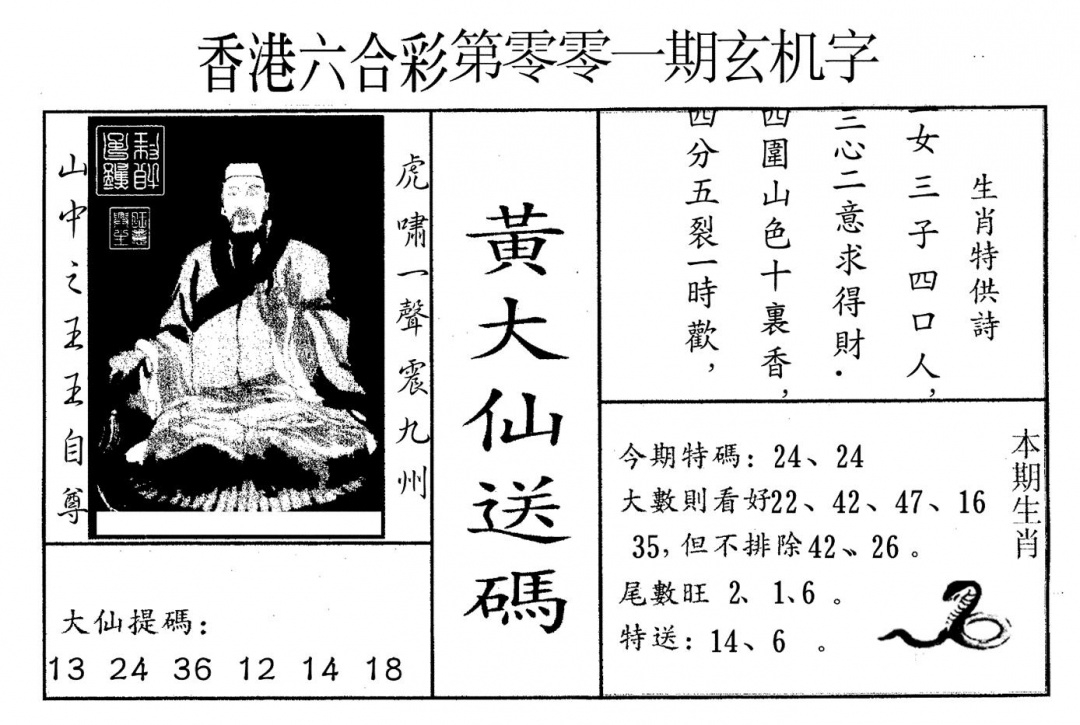 香港六合彩第零零一期玄机字
虎嘯一聲震九州
山中之王王自尊
大仙提碼：
13 24 36 12 14 18
黃大仙送碼
生肖特供詩
女三子四口人，
三心二意求得財.
四圍山色十裏香，
四分五裂一時歡，
本期生肖
今期特碼：24、24
大數則看好22、42、47、16
35，但不排除42、26。
尾數旺 2、1、6 。
特送：14、6 。